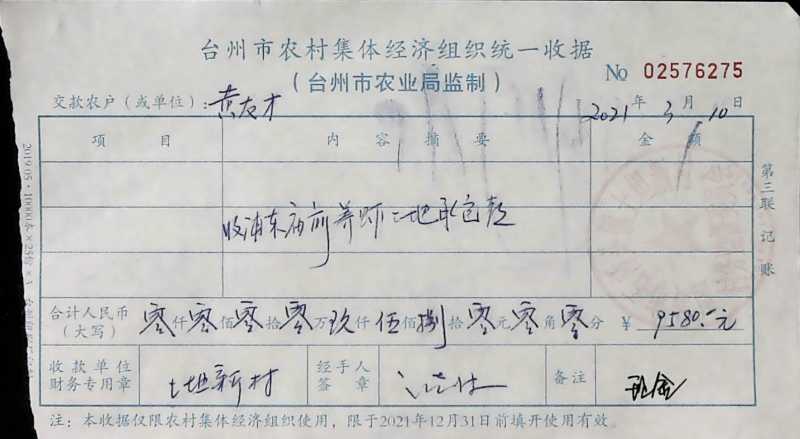 台州市农村集体经济组织统一收据
（台州市农业局监制）
No 02576275
交款农户（或单位）：黄友才 2021年3月10日
项目 内容摘要 金额
收浦东庙前养虾土地承包款
合计人民币（大写） 零仟零佰零拾零万玖仟伍佰捌拾零元零角零分 ￥9580.-元
收款单位财务专用章 土地新村 经手人签章 备注 现金
注：本收据仅限农村集体经济组织使用，限于2021年12月31日前填开使用有效。
第三联 记账